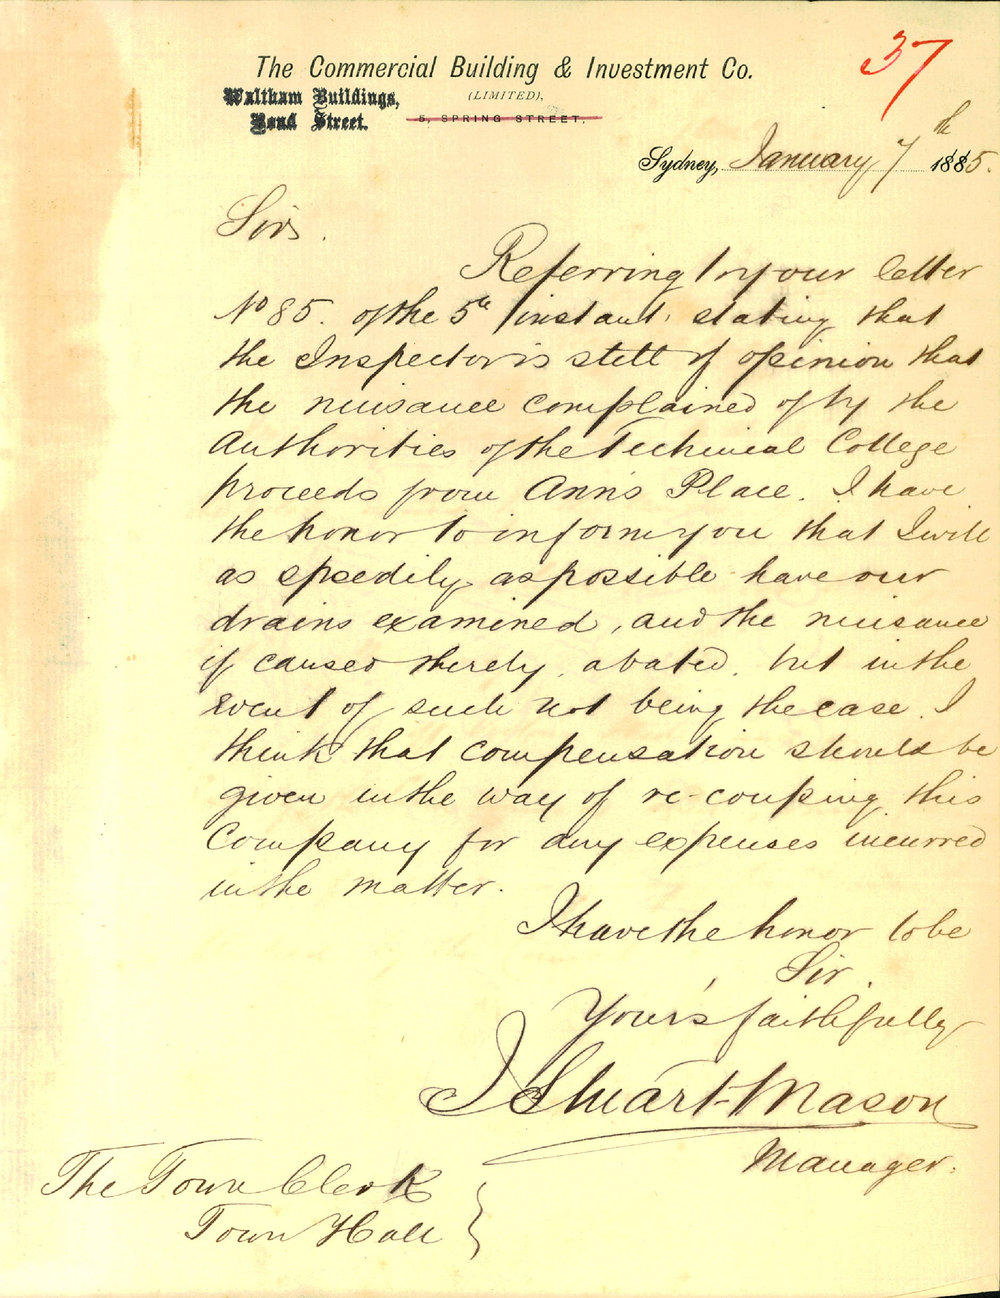 37
The Commercial Building & Investment Co.
(LIMITED),
Waltham Buildings,
Bond Street.
5, SPRING STREET,
Sydney, January 7th 1885.
Sir.
Referring to your letter
No 85. of the 5th instant, stating that
the Inspector is still of opinion that
the nuisance complained of by the
Authorities of the Technical College
proceeds from Ann's Place. I have
the honor to inform you that I will
as speedily as possible have our
drains examined, and the nuisance
if caused thereby, abated, but in the
event of such not being the case. I
think that compensation should be
given in the way of re-couping this
Company for any expenses incurred
in the matter.
I have the honor to be
Sir.
Your's faithfully
J Stuart-Mason
Manager.
The Town Clerk
Town Hall